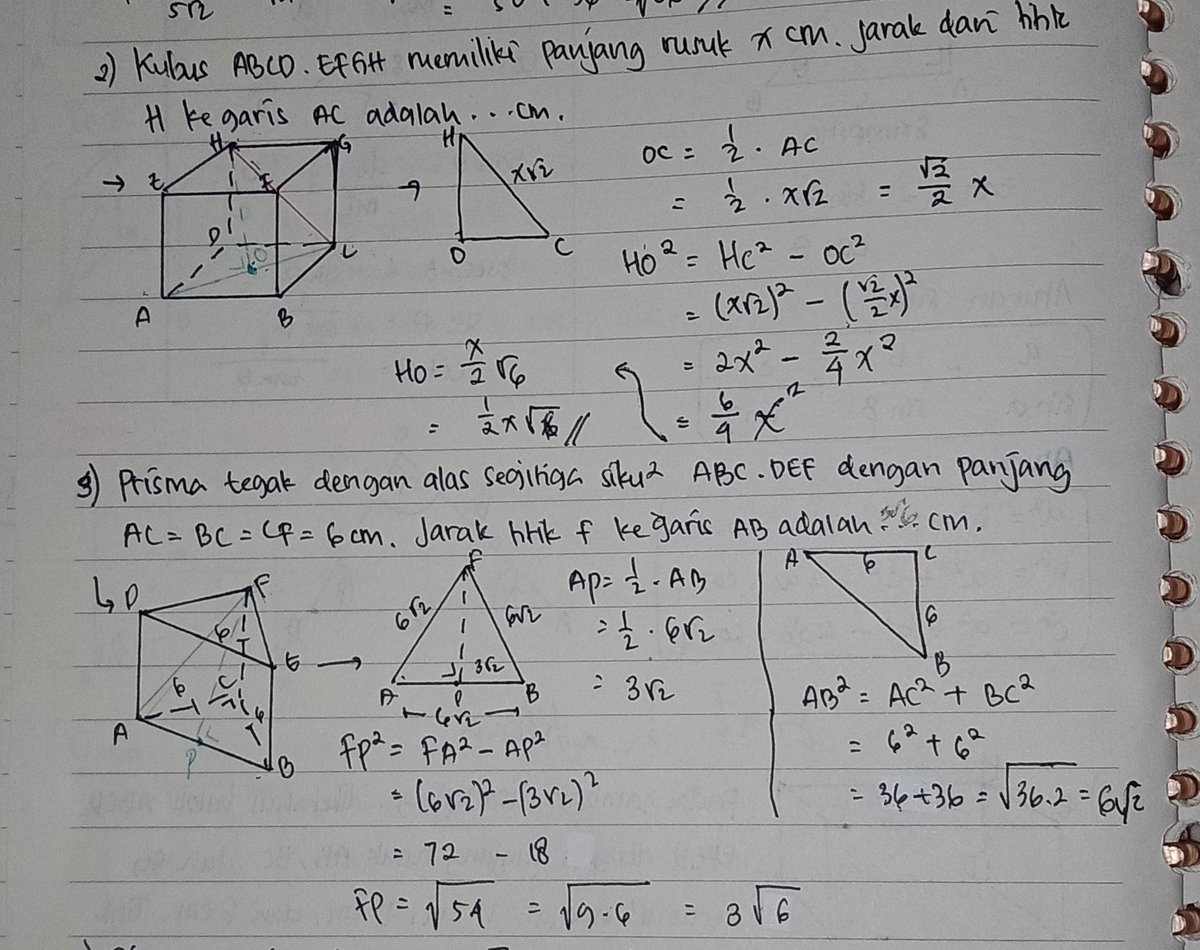 5√2 =
2) Kubus ABCD.EFGH memiliki panjang rusuk x cm. jarak dari titik
H ke garis AC adalah ... cm.
H G
E F
D C
O
A B
H
x√2
O C
OC = 1/2 . AC
= 1/2 . x√2 = √2/2 x
HO² = HC² - OC²
= (x√2)² - (√2/2 x)²
= 2x² - 2/4 x²
= 6/4 x²
HO = x/2 √6
= 1/2 x√6 //
3) Prisma tegak dengan alas segitiga siku² ABC.DEF dengan panjang
AC = BC = CF = 6 cm. Jarak titik F ke garis AB adalah ... cm.
D F
6 E
6 C
A 6
P B
F
6√2 6√2
3√2
A P B
6√2
AP = 1/2 . AB
= 1/2 . 6√2
= 3√2
FP² = FA² - AP²
= (6√2)² - (3√2)²
= 72 - 18
FP = √54 = √9.6 = 3√6
A 6 C
6
B
AB² = AC² + BC²
= 6² + 6²
= 36 + 36 = √36.2 = 6√2